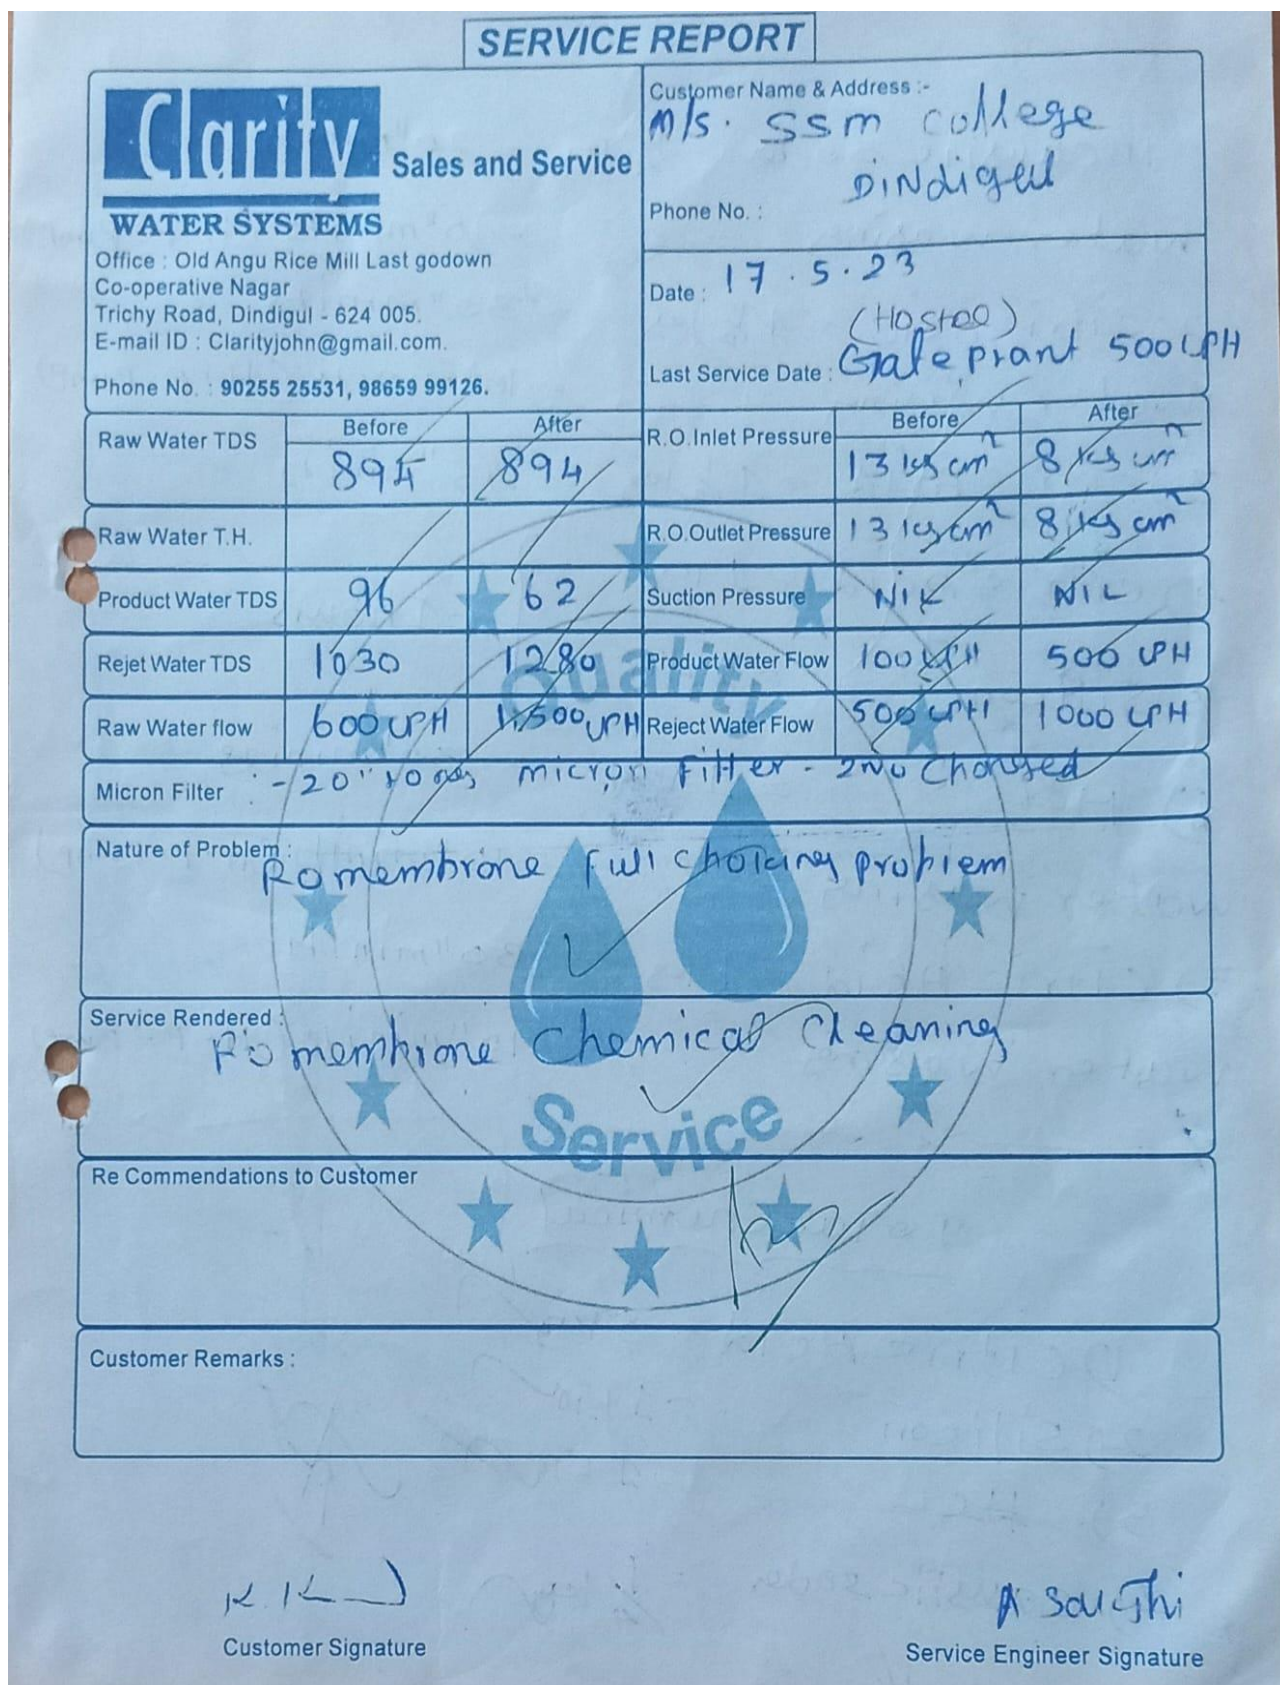 SERVICE REPORT
Clarity
Sales and Service
WATER SYSTEMS
Office : Old Angu Rice Mill Last godown
Co-operative Nagar
Trichy Road, Dindigul - 624 005.
E-mail ID : Clarityjohn@gmail.com.
Phone No. : 90255 25531, 98659 99126.
Customer Name & Address :-
M/s. SSM College
Dindigul
Phone No. :
Date : 17.5.23
(Hostel)
Last Service Date : Gate plant 500 LPH
Before After Before After
Raw Water TDS 894 894 R.O.Inlet Pressure 13 kg cm² 8 kg cm²
Raw Water T.H. R.O.Outlet Pressure 13 kg cm² 8 kg cm²
Product Water TDS 96 62 Suction Pressure NIL NIL
Rejet Water TDS 1030 1280 Product Water Flow 100 LPH 500 LPH
Raw Water flow 600 LPH 1,500 LPH Reject Water Flow 500 LPH 1000 LPH
Micron Filter :- 20" micron Filter - 2No Changed
Nature of Problem :
Ro membrane full choking problem
Quality
Service Rendered :
Ro membrane Chemical Cleaning
Service
Re Commendations to Customer
Customer Remarks :
Customer Signature
Service Engineer Signature